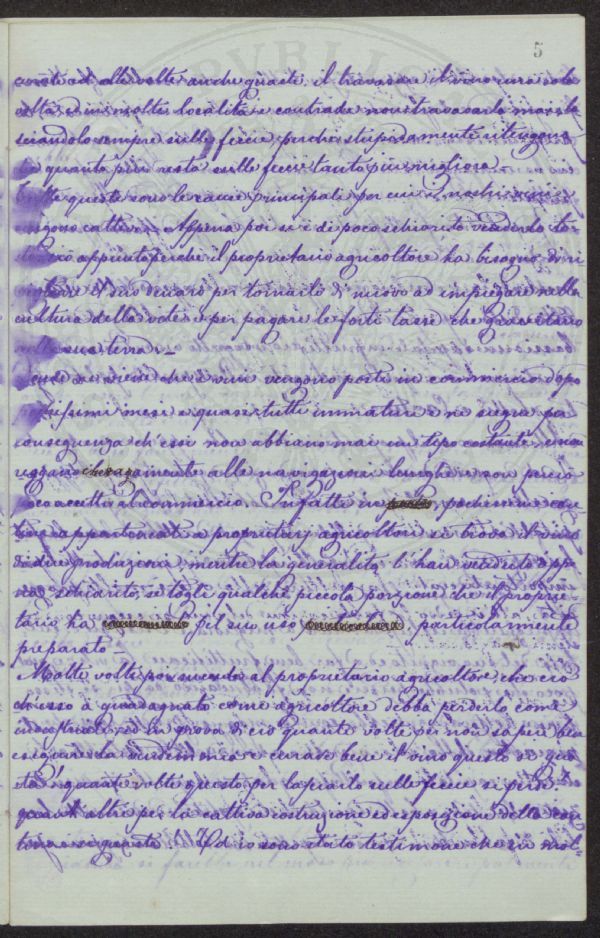 5
alle volte anche guaste, il travasare il vino una sola
volta ed in molte località e contrade non travasarlo mai, la
sciandolo sempre sulle feccie, perchè stupidamente ritengono
quanto più resta sulle feccie tanto più migliora.
queste sono le cause principali per cui i nostri vini
cattivi. Appena poi si è di poco schiarito vendonlo
appunto perchè il proprietario agricoltore ha bisogno di ri
il suo denaro per tornarlo di nuovo ad impiegare nella
cultura della vite e per pagare le forti tasse che gravitano
sua terra.
che i vini vengono posti in commercio dopo
mesi e quasi tutti immaturi e ne segue per
conseguenza che essi non abbiano mai un tipo costante, e non
alle navigazioni lunghe e son perciò
poco accetti al commercio. Infatti in pochissime can
tine appartenenti a proprietarj agricoltori si trova il vino
di due produzioni, mentre la generalità l'han venduto appe
na schiarito, se togli qualche piccola porzione che il proprie-
tario ha pel suo uso particolarmente
preparato.
Molte volte poi succede al proprietario agricoltore che ciò
ch'esso à guadagnato come agricoltore debba perderlo come
industriale, ed in prova di ciò quante volte per non sapere ben
eseguire la vendemmia e curare bene il vino questo si gua
sta! quante volte questo per lasciarlo sulle feccie si perde.
quanti altri per la cattiva costruzione ed esposizione della can
tina si guasta! Ed io sono stato testimone che in mol-